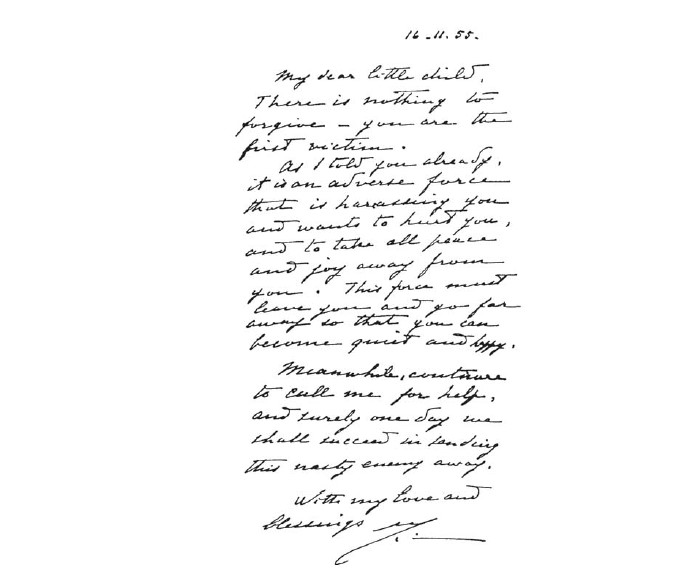 16-11.55.
My dear little child,
There is nothing to
forgive – you are the
first victim.
As I told you already,
it is an adverse force
that is harassing you
and wants to hurt you,
and to take all peace
and joy away from
you. This force must
leave you and go far
away so that you can
become quiet and happy.
Meanwhile, continue
to call me for help,
and surely one day we
shall succeed in sending
this nasty enemy away.
With my love and
blessings